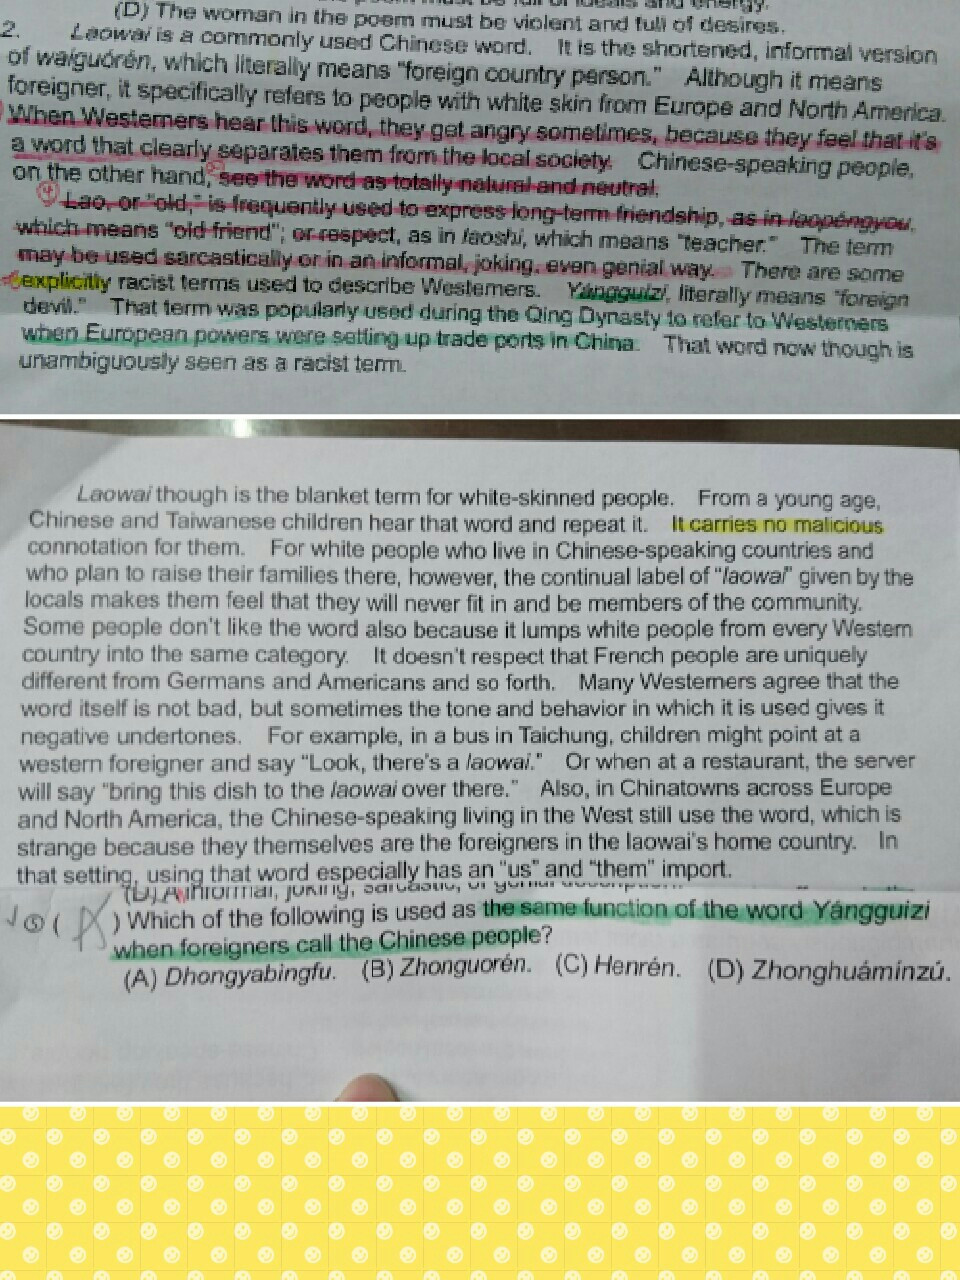 (D) The woman in the poem must be violent and full of desires.
2. Laowai is a commonly used Chinese word. It is the shortened, informal version
of waiguórén, which literally means "foreign country person." Although it means
foreigner, it specifically refers to people with white skin from Europe and North America.
When Westerners hear this word, they get angry sometimes, because they feel that it's
a word that clearly separates them from the local society. Chinese-speaking people,
on the other hand, see the word as totally natural and neutral.
④ Lao, or "old," is frequently used to express long-term friendship, as in laopéngyou,
which means "old friend"; or respect, as in laoshi, which means "teacher." The term
may be used sarcastically or in an informal, joking, even genial way. There are some
explicitly racist terms used to describe Westerners. Yángguizi, literally means "foreign
devil." That term was popularly used during the Qing Dynasty to refer to Westerners
when European powers were setting up trade ports in China. That word now though is
unambiguously seen as a racist term.
Laowai though is the blanket term for white-skinned people. From a young age,
Chinese and Taiwanese children hear that word and repeat it. It carries no malicious
connotation for them. For white people who live in Chinese-speaking countries and
who plan to raise their families there, however, the continual label of "laowai" given by the
locals makes them feel that they will never fit in and be members of the community.
Some people don't like the word also because it lumps white people from every Western
country into the same category. It doesn't respect that French people are uniquely
different from Germans and Americans and so forth. Many Westerners agree that the
word itself is not bad, but sometimes the tone and behavior in which it is used gives it
negative undertones. For example, in a bus in Taichung, children might point at a
western foreigner and say "Look, there's a laowai." Or when at a restaurant, the server
will say "bring this dish to the laowai over there." Also, in Chinatowns across Europe
and North America, the Chinese-speaking living in the West still use the word, which is
strange because they themselves are the foreigners in the laowai's home country. In
that setting, using that word especially has an "us" and "them" import.
(D) informal, joking, sarcastic, or genial
⑤ ( A ) Which of the following is used as the same function of the word Yángguizi
when foreigners call the Chinese people?
(A) Dhongyabingfu. (B) Zhonguorén. (C) Henrén. (D) Zhonghuámínzú.